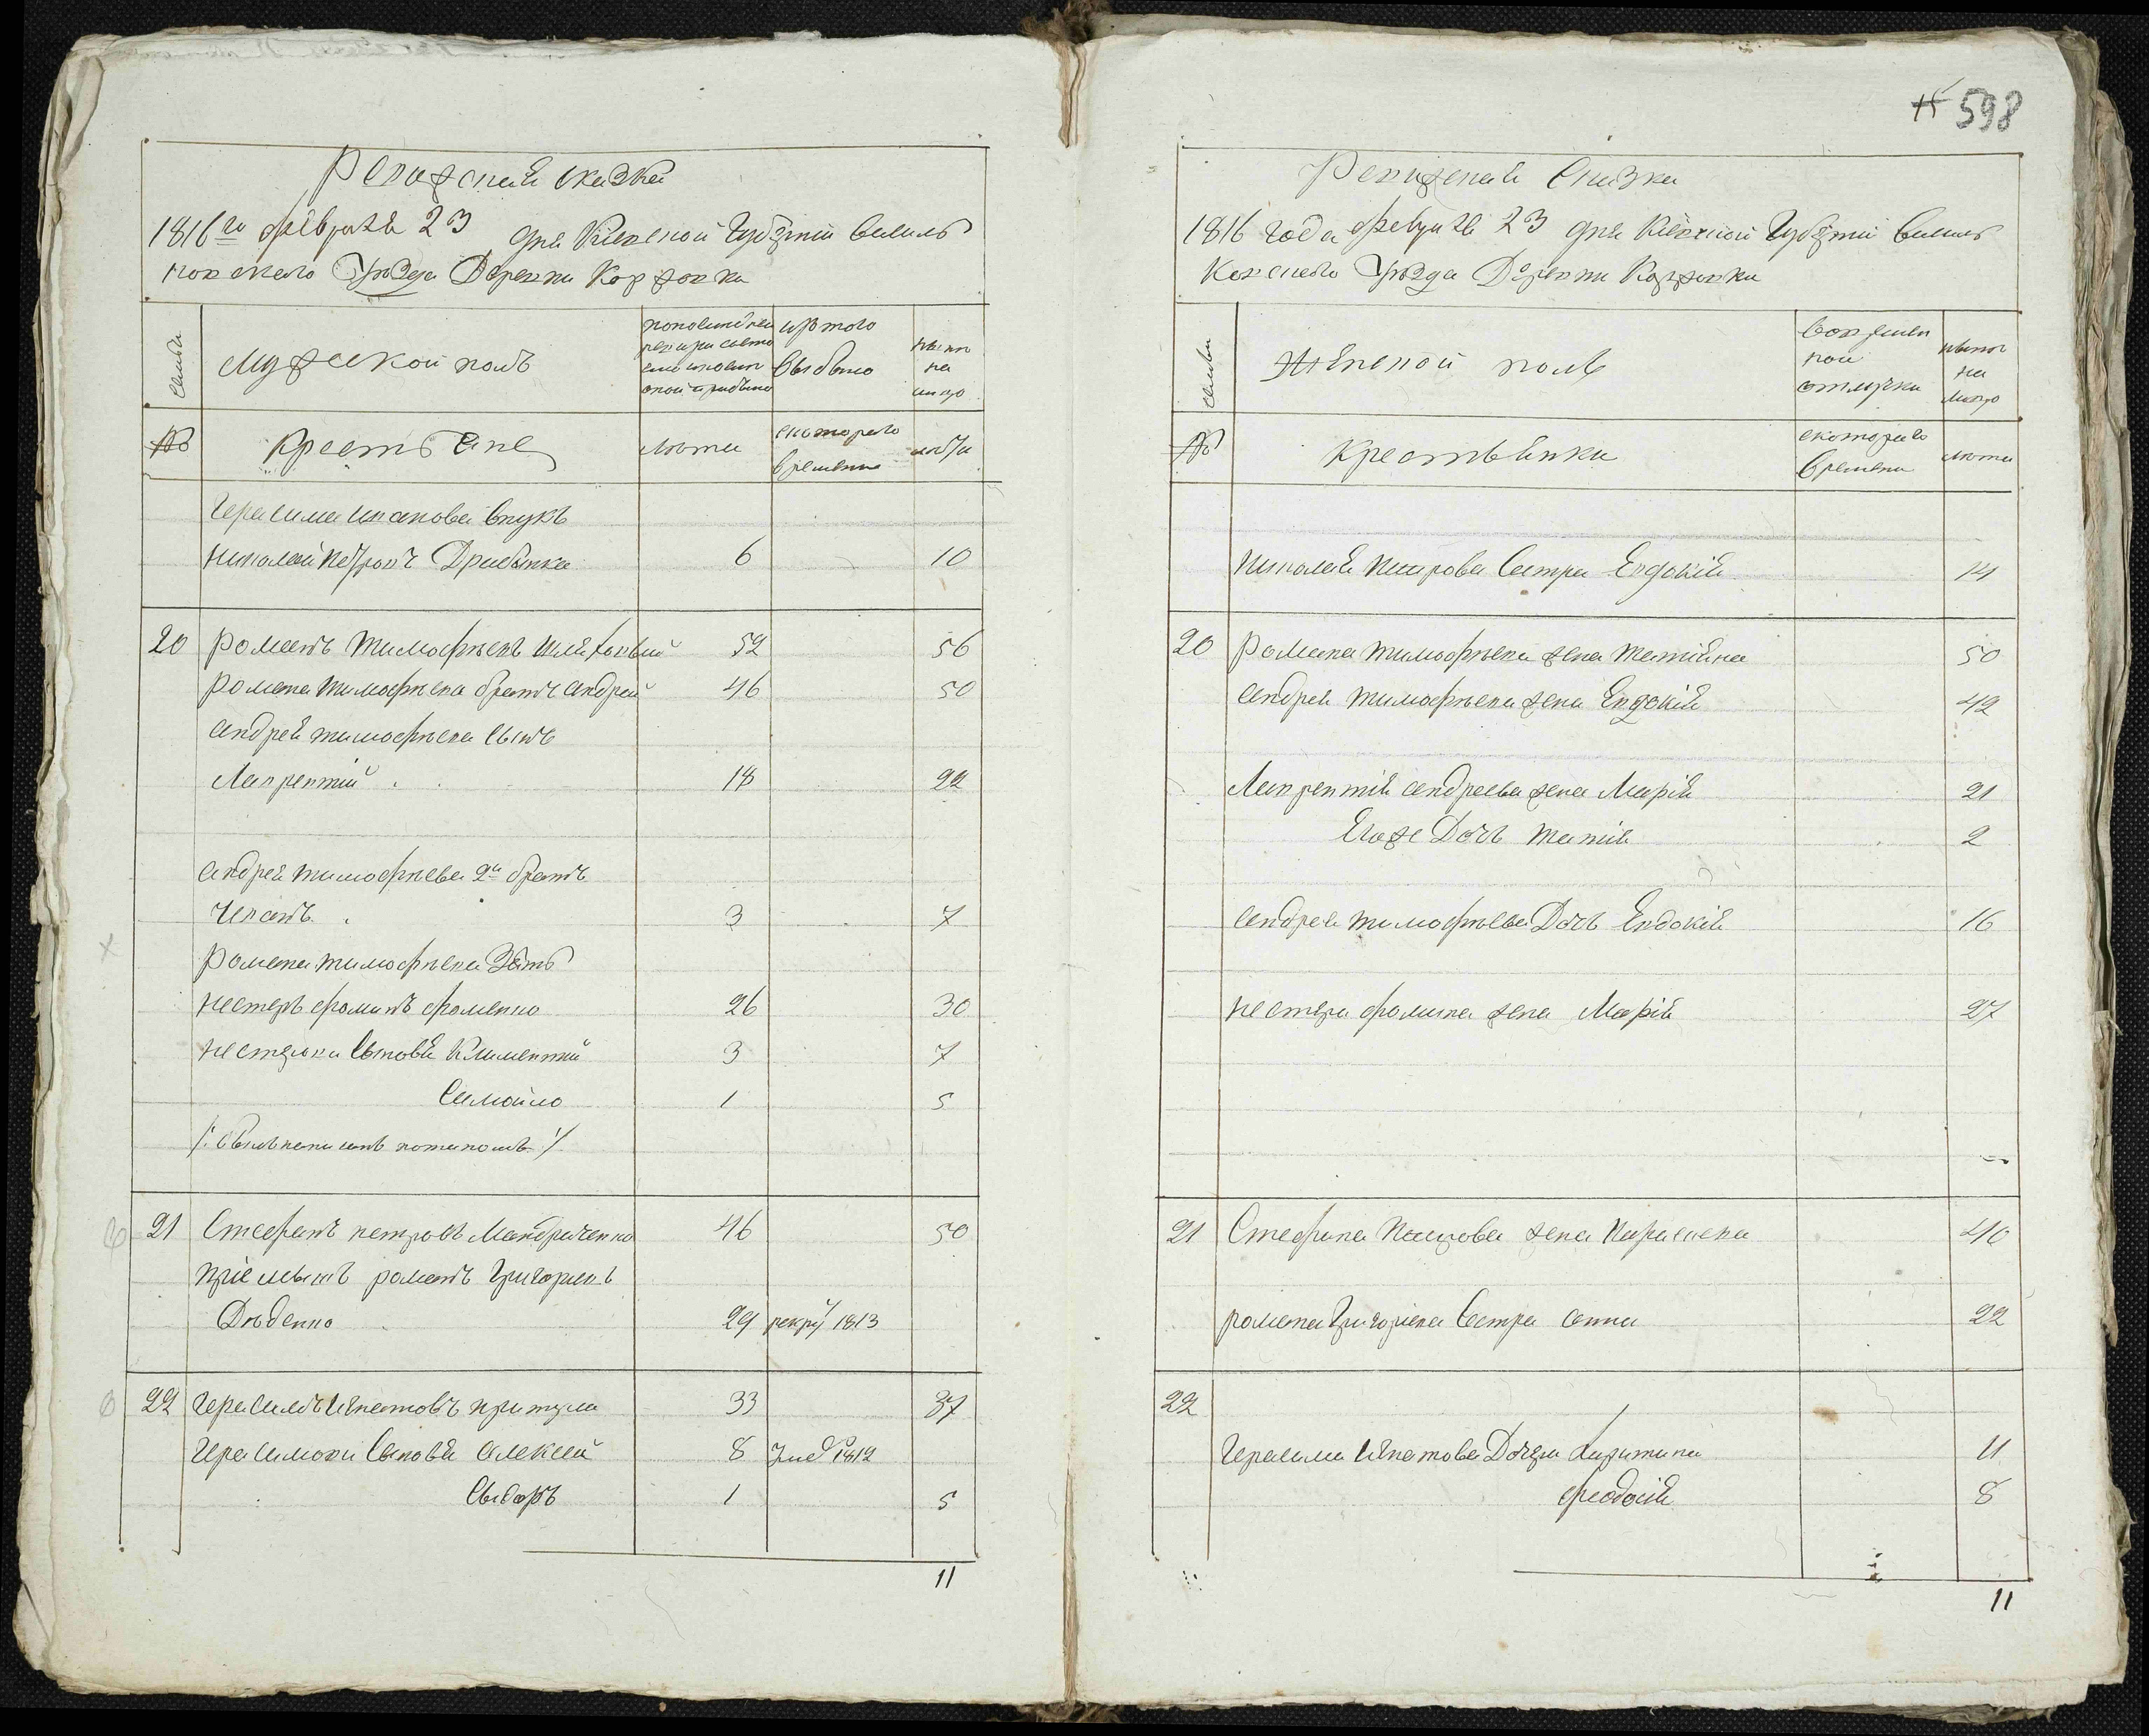 Ревижская сказка
1816го февраля 23 дня Киевской Губернии Василь
ковского Уезда Деревни Коржовки
семьи
Мужеской полъ
по последней
ревизии состо
яло и после
оной прибыло
изъ того
выбыло
ныне
на
лицо
№
Крестьяне
лета
с котораго
времени
лета
Герасима Иванова внукъ
Николай Петровъ Дрибынка 6 10
20 Романъ Тимофеевъ 52 56
Романа Тимофеева братъ андрей 46 50
андрея тимофеева сынъ
Лаврентий 18 22
андрея тимофеева 2й братъ
Иванъ 3 7
Романа тимофеева зять
Нестеръ фоминъ фоменко 26 30
Нестеровы сыновья Климентий 3 7
Самойло 1 5
21 Стефанъ петровъ Мандриченко 46 50
приемышъ романъ Григориевъ
Деденко 29 рекрут 1813
22 Герасимъ Игнатовъ притула 33 37
Герасимовы сыновья алексей 8 умер 1812
Сыдоръ 1 5
11
15 598
Ревижская Сказка
1816 года февраля 23 дня Киевской Губернии Василь
ковского Уезда Деревни Коржовки
семьи
Женской полъ
во времен
ной
отлучки
ныне
на
лицо
№
Крестьянки
с котораго
времени
лета
Николая Петрова сестра Евдокия 14
20 Романа тимофеева жена Татияна 50
андрея тимофеева жена Евдокия 42
Лаврентия андреева жена Мария 21
Егоже Дочь 2
андрея тимофеева Дочь Евдокия 16
Нестера фомина жена Мария 27
21 Стефана Петрова жена Параскева 40
романа Григориева сестра анна 22
22
Герасима Игнатова Дочери Харитина 11
феодосия 8
11